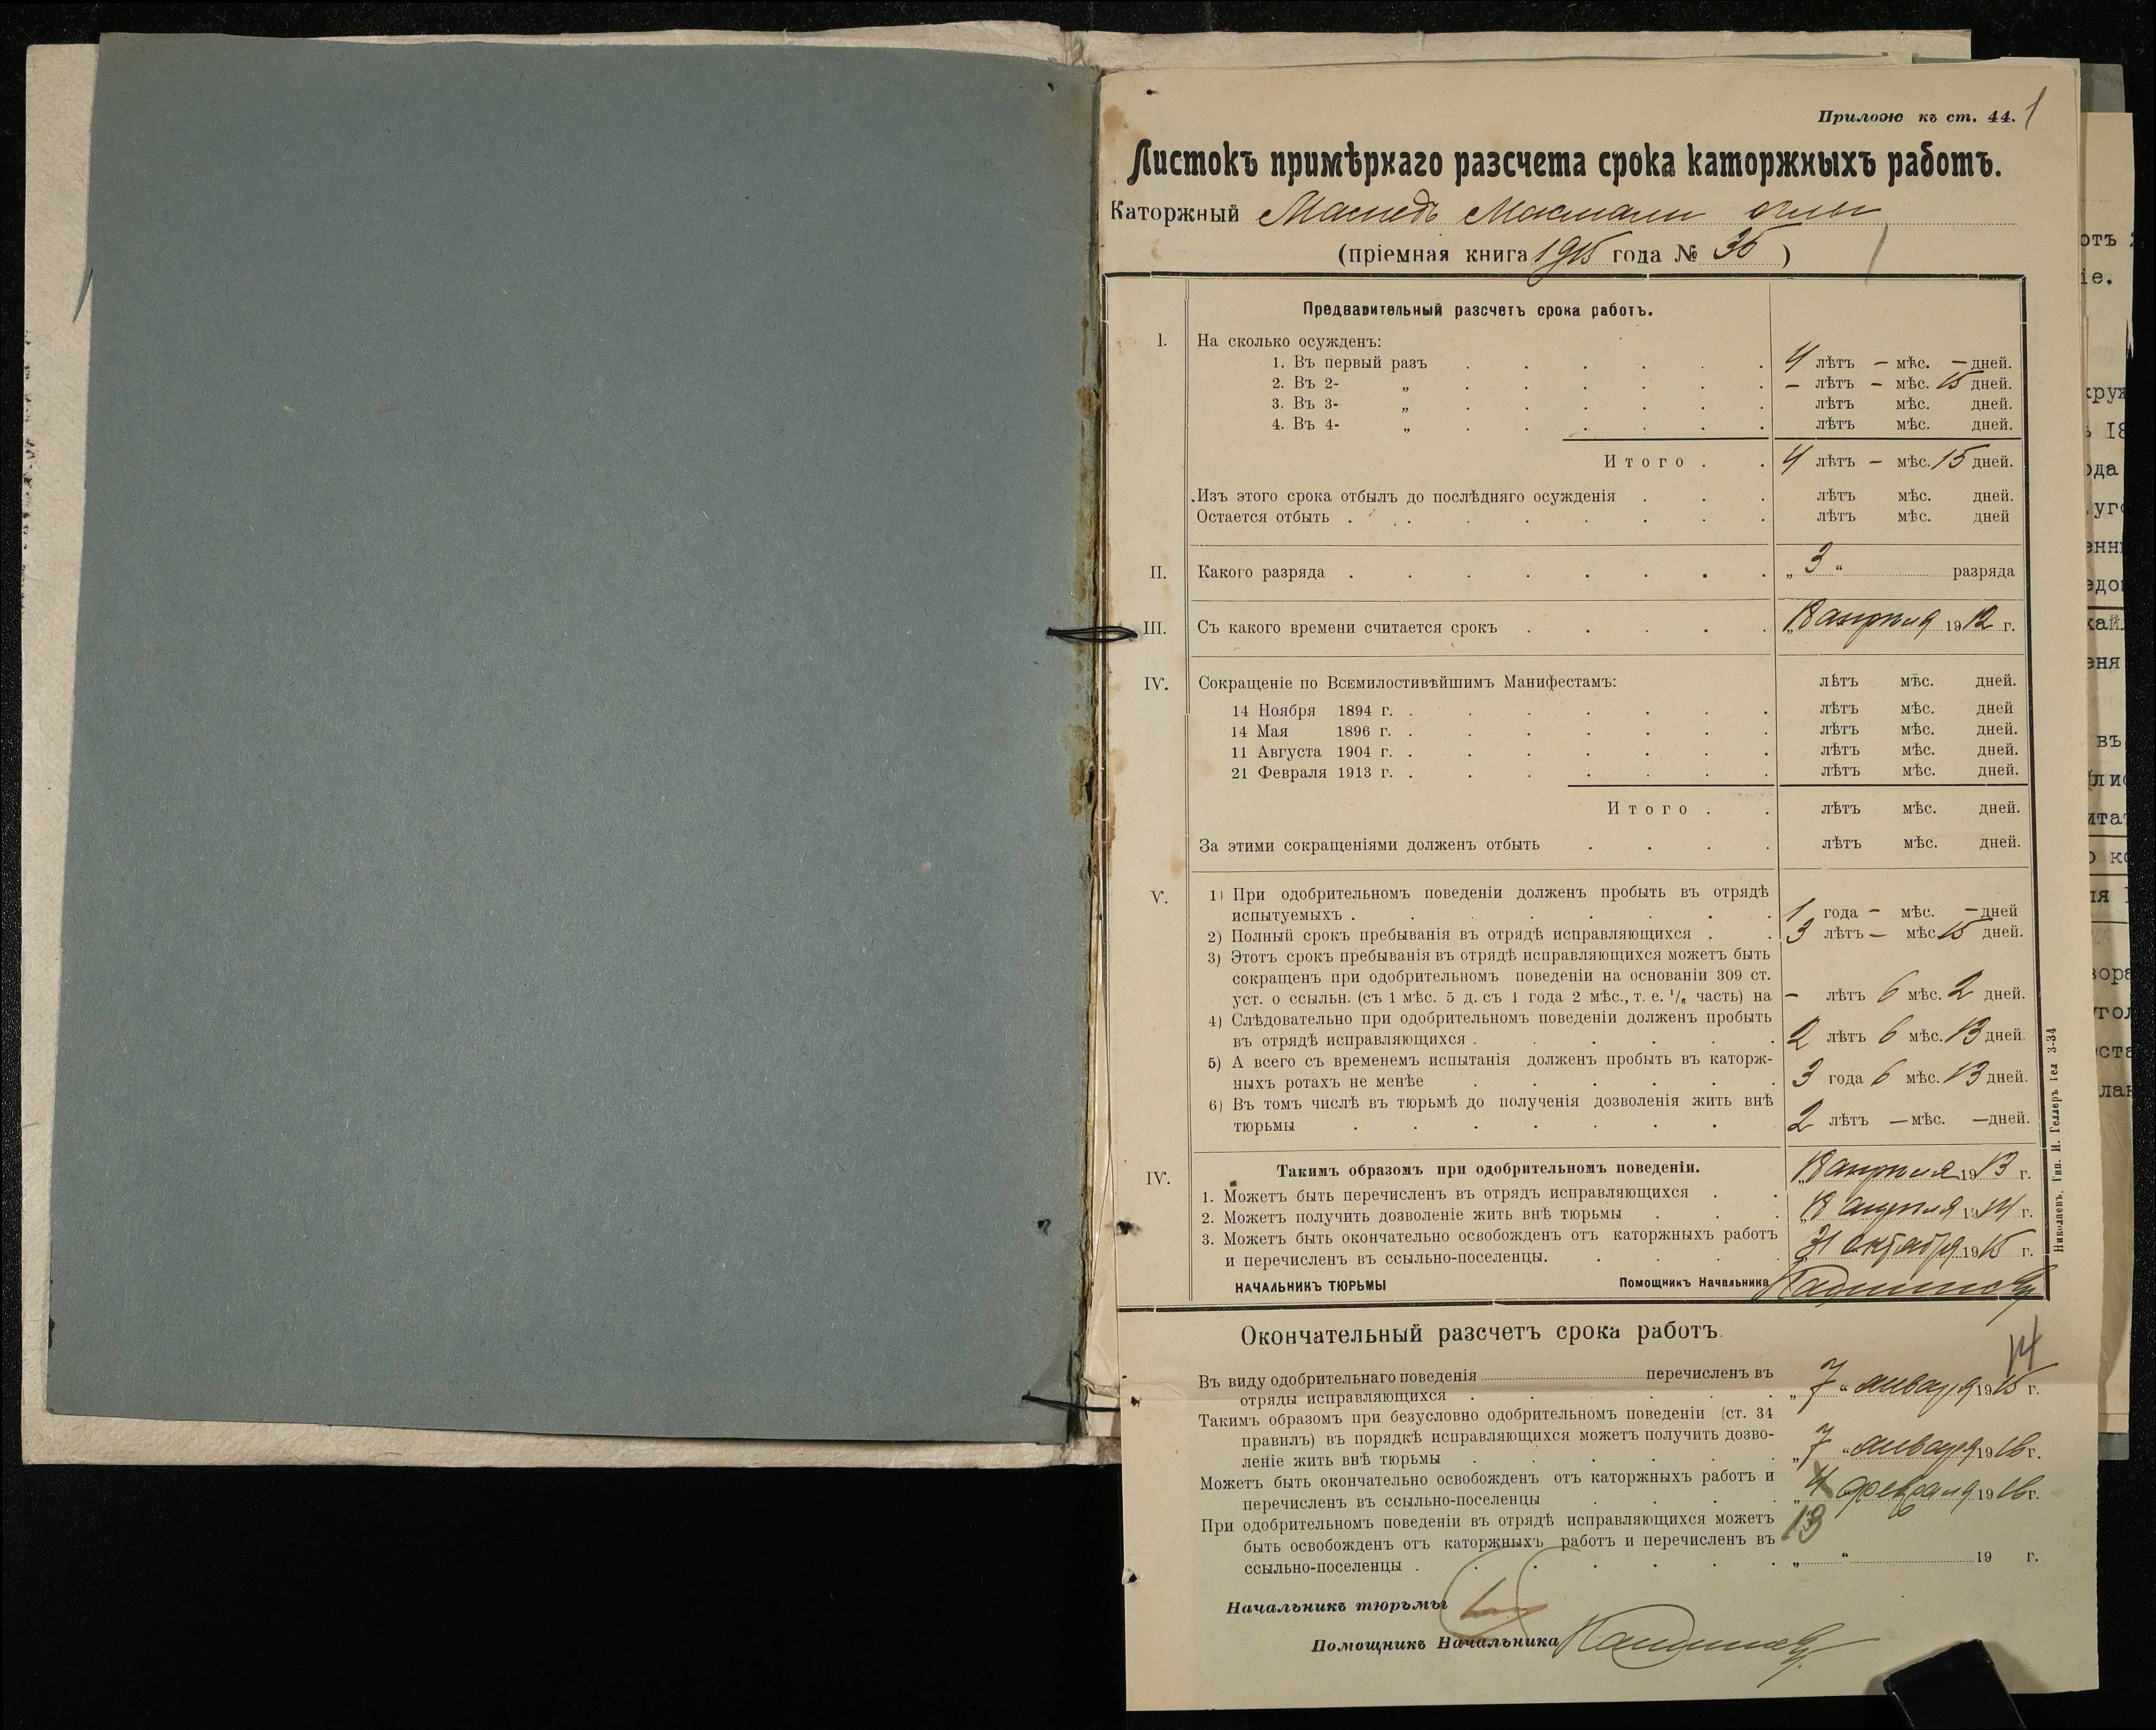 Приложю къ ст. 44. 1
Листокъ примѣрнаго разсчета срока каторжныхъ работъ.
Каторжный оглы
(пріемная книга 1915 года № 35)
Предварительный разсчетъ срока работъ.
I. На сколько осужденъ:
1. Въ первый разъ 4 лѣтъ – мѣс. – дней.
2. Въ 2- „ – лѣтъ – мѣс. 15 дней.
3. Въ 3- „ лѣтъ мѣс. дней.
4. Въ 4- „ лѣтъ мѣс. дней.
Итого . . 4 лѣтъ – мѣс. 15 дней.
Изъ этого срока отбылъ до послѣдняго осужденія . . . лѣтъ мѣс. дней.
Остается отбыть . лѣтъ мѣс. дней
II. Какого разряда . „ 3 “ разряда
III. Съ какого времени считается срокъ . „18 апрѣля 1912 г.
IV. Сокращеніе по Всемилостивѣйшимъ Манифестамъ: лѣтъ мѣс. дней.
14 Ноября 1894 г. . лѣтъ мѣс. дней
14 Мая 1896 г. . лѣтъ мѣс. дней.
11 Августа 1904 г. . лѣтъ мѣс. дней.
21 Февраля 1913 г. . лѣтъ мѣс. дней.
Итого . . лѣтъ мѣс. дней.
За этими сокращеніями долженъ отбыть . лѣтъ мѣс. дней.
V. 1) При одобрительномъ поведеніи долженъ пробыть въ отрядѣ
испытуемыхъ . 1 года – мѣс. – дней
2) Полный срокъ пребыванія въ отрядѣ исправляющихся . 3 лѣтъ – мѣс. 15 дней.
3) Этотъ срокъ пребыванія въ отрядѣ исправляющихся можетъ быть
сокращенъ при одобрительномъ поведеніи на основаніи 309 ст.
уст. о ссыльн. (съ 1 мѣс. 5 д. съ 1 года 2 мѣс., т. е. 1/6 часть) на – лѣтъ 6 мѣс. 2 дней.
4) Слѣдовательно при одобрительномъ поведеніи долженъ пробыть
въ отрядѣ исправляющихся . 2 лѣтъ 6 мѣс. 13 дней.
5) А всего съ временемъ испытанія долженъ пробыть въ каторж-
ныхъ ротахъ не менѣе . 3 года 6 мѣс. 13 дней.
6) Въ томъ числѣ въ тюрьмѣ до полученія дозволенія жить внѣ
тюрьмы . 2 лѣтъ – мѣс. – дней.
IV. Такимъ образомъ при одобрительномъ поведеніи.
1. Можетъ быть перечисленъ въ отрядъ исправляющихся . „18 апрѣля 1913 г.
2. Можетъ получить дозволеніе жить внѣ тюрьмы . „18 апрѣля 1914 г.
3. Можетъ быть окончательно освобожденъ отъ каторжныхъ работъ
и перечисленъ въ ссыльно-поселенцы. . „31 октября 1915 г.
НАЧАЛЬНИКЪ ТЮРЬМЫ Помощникъ Начальника
Николаевъ, Тип. И. Геллеръ
Окончательный разсчетъ срока работъ.
14
Въ виду одобрительнаго поведенія перечисленъ въ
отряды исправляющихся . „ 7 “ января 1915 г.
Такимъ образомъ при безусловно одобрительномъ поведеніи (ст. 34
правилъ) въ порядкѣ исправляющихся можетъ получить дозво-
леніе жить внѣ тюрьмы . „ 7 “ января 1916 г.
Можетъ быть окончательно освобожденъ отъ каторжныхъ работъ и
перечисленъ въ ссыльно-поселенцы . „ 4 февраля 1916 г.
13
При одобрительномъ поведеніи въ отрядѣ исправляющихся можетъ
быть освобожденъ отъ каторжныхъ работъ и перечисленъ въ
ссыльно-поселенцы . „ “ 19 г.
Начальникъ тюрьмы
Помощникъ Начальника